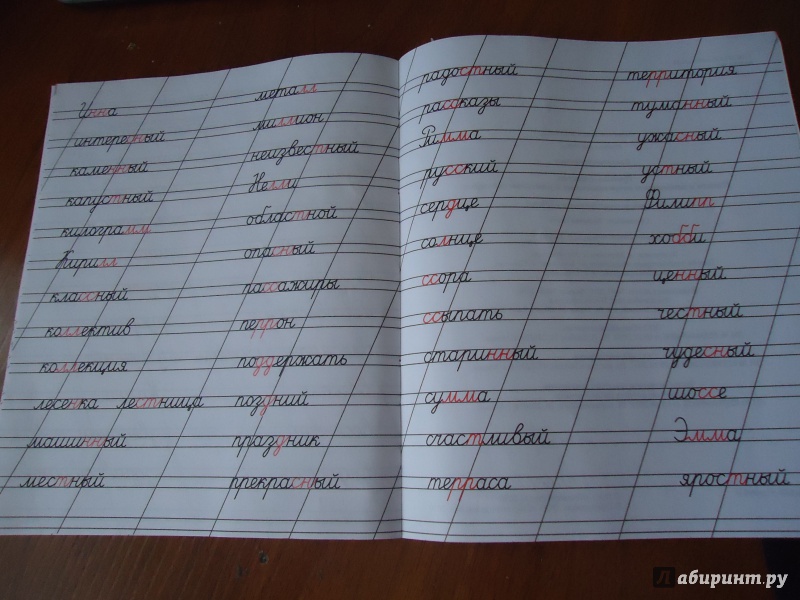 Инна
интересный
каменный
капустный
килограмм
Кирилл
классный
коллектив
коллекция
лесенка лестница
машинный
местный
металл
миллион
неизвестный
Нелли
областной
опасный
пассажиры
перрон
поддержать
поздний
праздник
прекрасный
радостный
рассказы
Римма
русский
сердце
солнце
ссора
ссыпать
старинный
сумма
счастливый
терраса
территория
туманный
ужасный
устный
Филипп
хобби
ценный
честный
чудесный
шоссе
Эмма
яростный
Лабиринт.ру